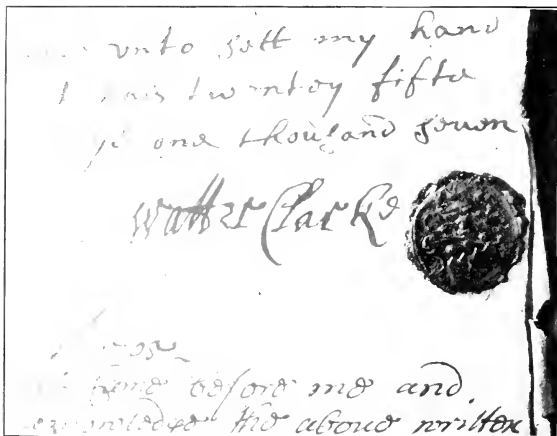 unto sett my hand
twentey fifte
one thousand seven
Walter Clarke
came before me and
the aboue written